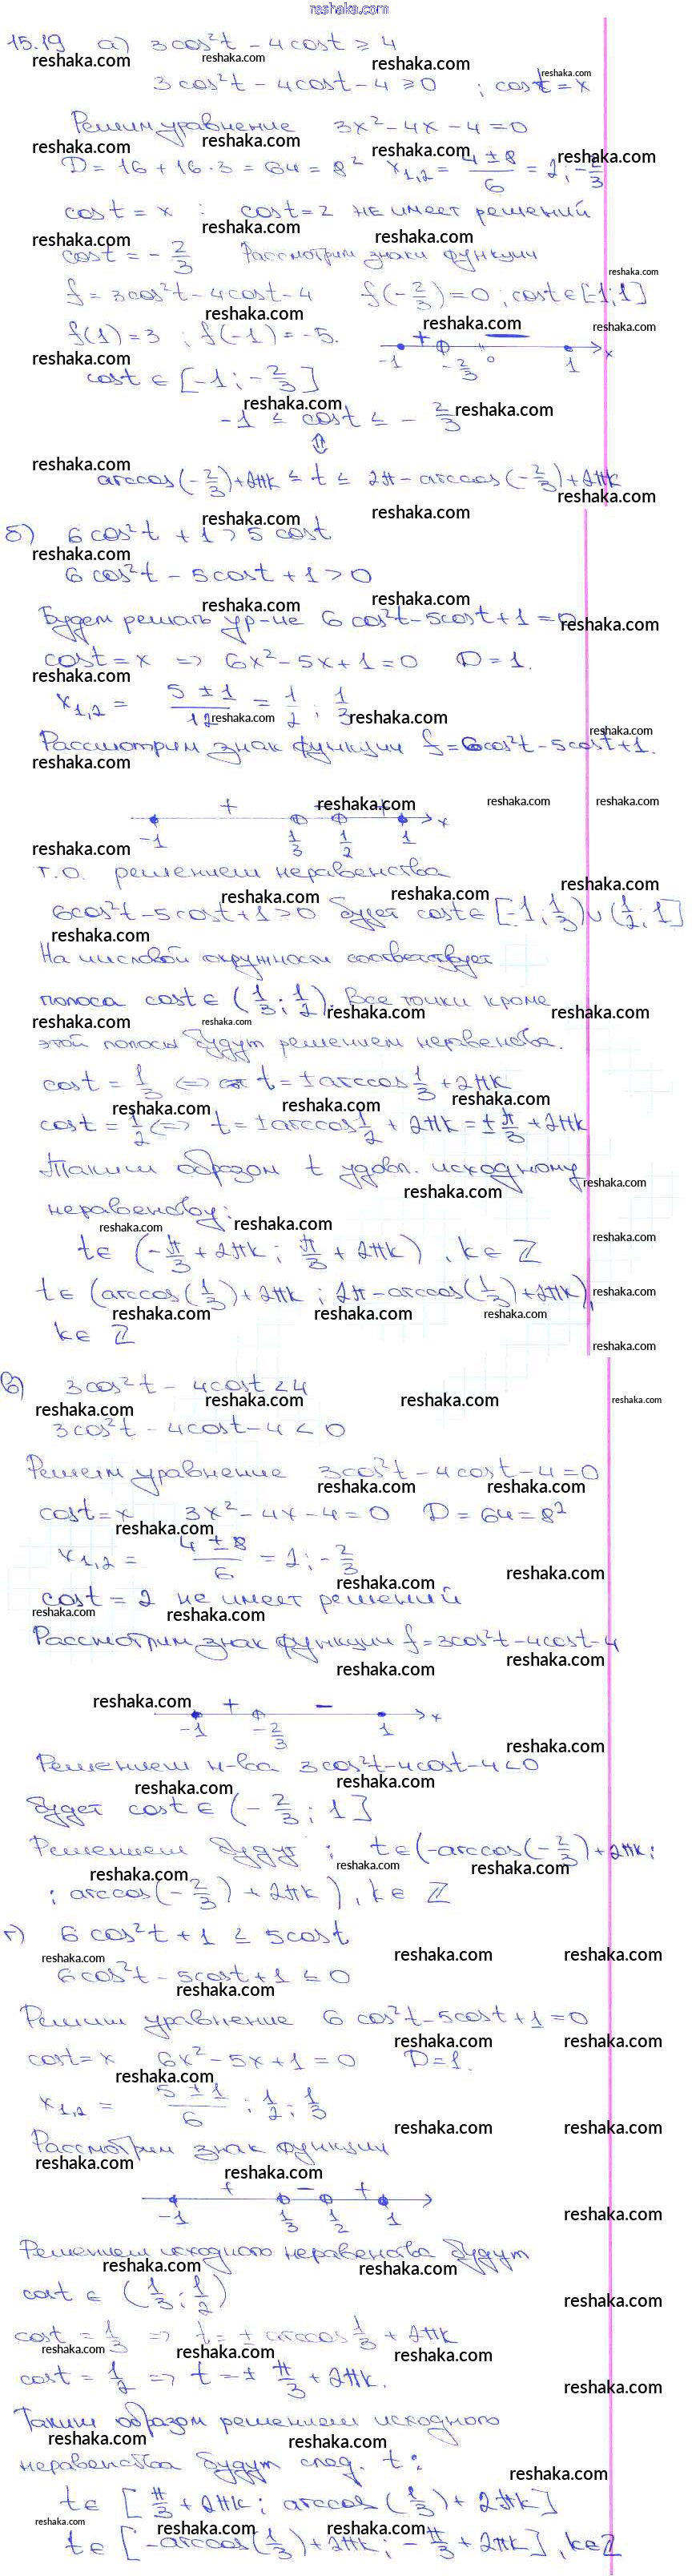 reshaka.com
15.19 а) 3cos²t - 4cost ≥ 4
3cos²t - 4cost - 4 ≥ 0 ; cost = x
Решим уравнение 3x² - 4x - 4 = 0
D = 16 + 16·3 = 64 = 8² x₁,₂ = (4 ± 8)/6 = 2; -2/3
cost = x : cost = 2 не имеет решений
cost = -2/3 Рассмотрим знаки функции
f = 3cos²t - 4cost - 4 f(-2/3) = 0 ; cost ∈ [-1; 1]
f(1) = 3 ; f(-1) = -5.
+ −
-1 -2/3 0 1 x
cost ∈ [-1; -2/3]
-1 ≤ cost ≤ -2/3
⇕
arccos(-2/3) + 2πk ≤ t ≤ 2π - arccos(-2/3) + 2πk
б) 6cos²t + 1 > 5cost
6cos²t - 5cost + 1 > 0
Будем решать ур-ие 6cos²t - 5cost + 1 = 0
cost = x => 6x² - 5x + 1 = 0 D = 1.
x₁,₂ = (5 ± 1)/12 = 1/2; 1/3
Рассмотрим знак функции f = 6cos²t - 5cost + 1.
+ − +
-1 1/3 1/2 1 x
т.о. решением неравенства
6cos²t - 5cost + 1 > 0 будет cost ∈ [-1; 1/3) ∪ (1/2; 1]
На числовой окружности соответствует
полоса cost ∈ (1/3; 1/2). Все точки кроме
этой полосы будут решением неравенства.
cost = 1/3 <=> t = ± arccos 1/3 + 2πk
cost = 1/2 <=> t = ± arccos 1/2 + 2πk = ± π/3 + 2πk
Таким образом t удовл. исходному
неравенству:
t ∈ (-π/3 + 2πk; π/3 + 2πk), k ∈ Z
t ∈ (arccos(1/3) + 2πk; 2π - arccos(1/3) + 2πk),
k ∈ Z
в) 3cos²t - 4cost < 4
3cos²t - 4cost - 4 < 0
Решим уравнение 3cos²t - 4cost - 4 = 0
cost = x 3x² - 4x - 4 = 0 D = 64 = 8²
x₁,₂ = (4 ± 8)/6 = 2; -2/3
cost = 2 не имеет решений
Рассмотрим знак функции f = 3cos²t - 4cost - 4
+ −
-1 -2/3 1 x
Решением н-ва 3cos²t - 4cost - 4 < 0
будет cost ∈ (-2/3; 1]
Решением будут: t ∈ (-arccos(-2/3) + 2πk;
; arccos(-2/3) + 2πk), k ∈ Z
г) 6cos²t + 1 ≤ 5cost
6cos²t - 5cost + 1 ≤ 0
Решим уравнение 6cos²t - 5cost + 1 = 0
cost = x 6x² - 5x + 1 = 0 D = 1.
x₁,₂ = (5 ± 1)/6 ; 1/2; 1/3
Рассмотрим знак функции
+ − +
-1 1/3 1/2 1
Решением исходного неравенства будут
cost ∈ (1/3; 1/2)
cost = 1/3 => t = ± arccos 1/3 + 2πk
cost = 1/2 => t = ± π/3 + 2πk.
Таким образом решением исходного
неравенства будут след. t:
t ∈ [π/3 + 2πk; arccos(1/3) + 2πk]
t ∈ [-arccos(1/3) + 2πk; -π/3 + 2πk], k ∈ Z